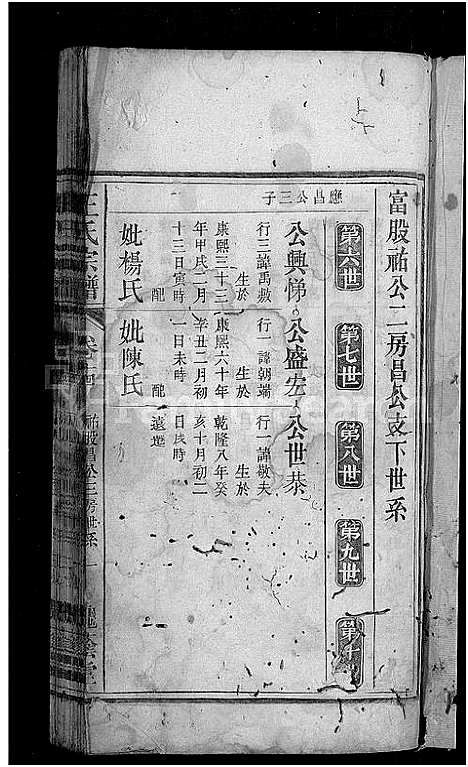 富股祐公二房昌公支下世系
第六世
第七世
第八世
第九世
第十
應昌公三子
公興悌
行三諱禹敷
生於
康熙三十三
年甲戌二月
十三日寅時
配
妣楊氏
公盛宏
行一諱朝端
生於
康熙六十年
辛丑二月初
一日未時
配
妣陳氏
公世恭
行一諱敬夫
生於
乾隆八年癸
亥十月初二
日戌時
遠遊
王氏宗譜
卷
祐股昌公三房世系
一
槐蔭堂